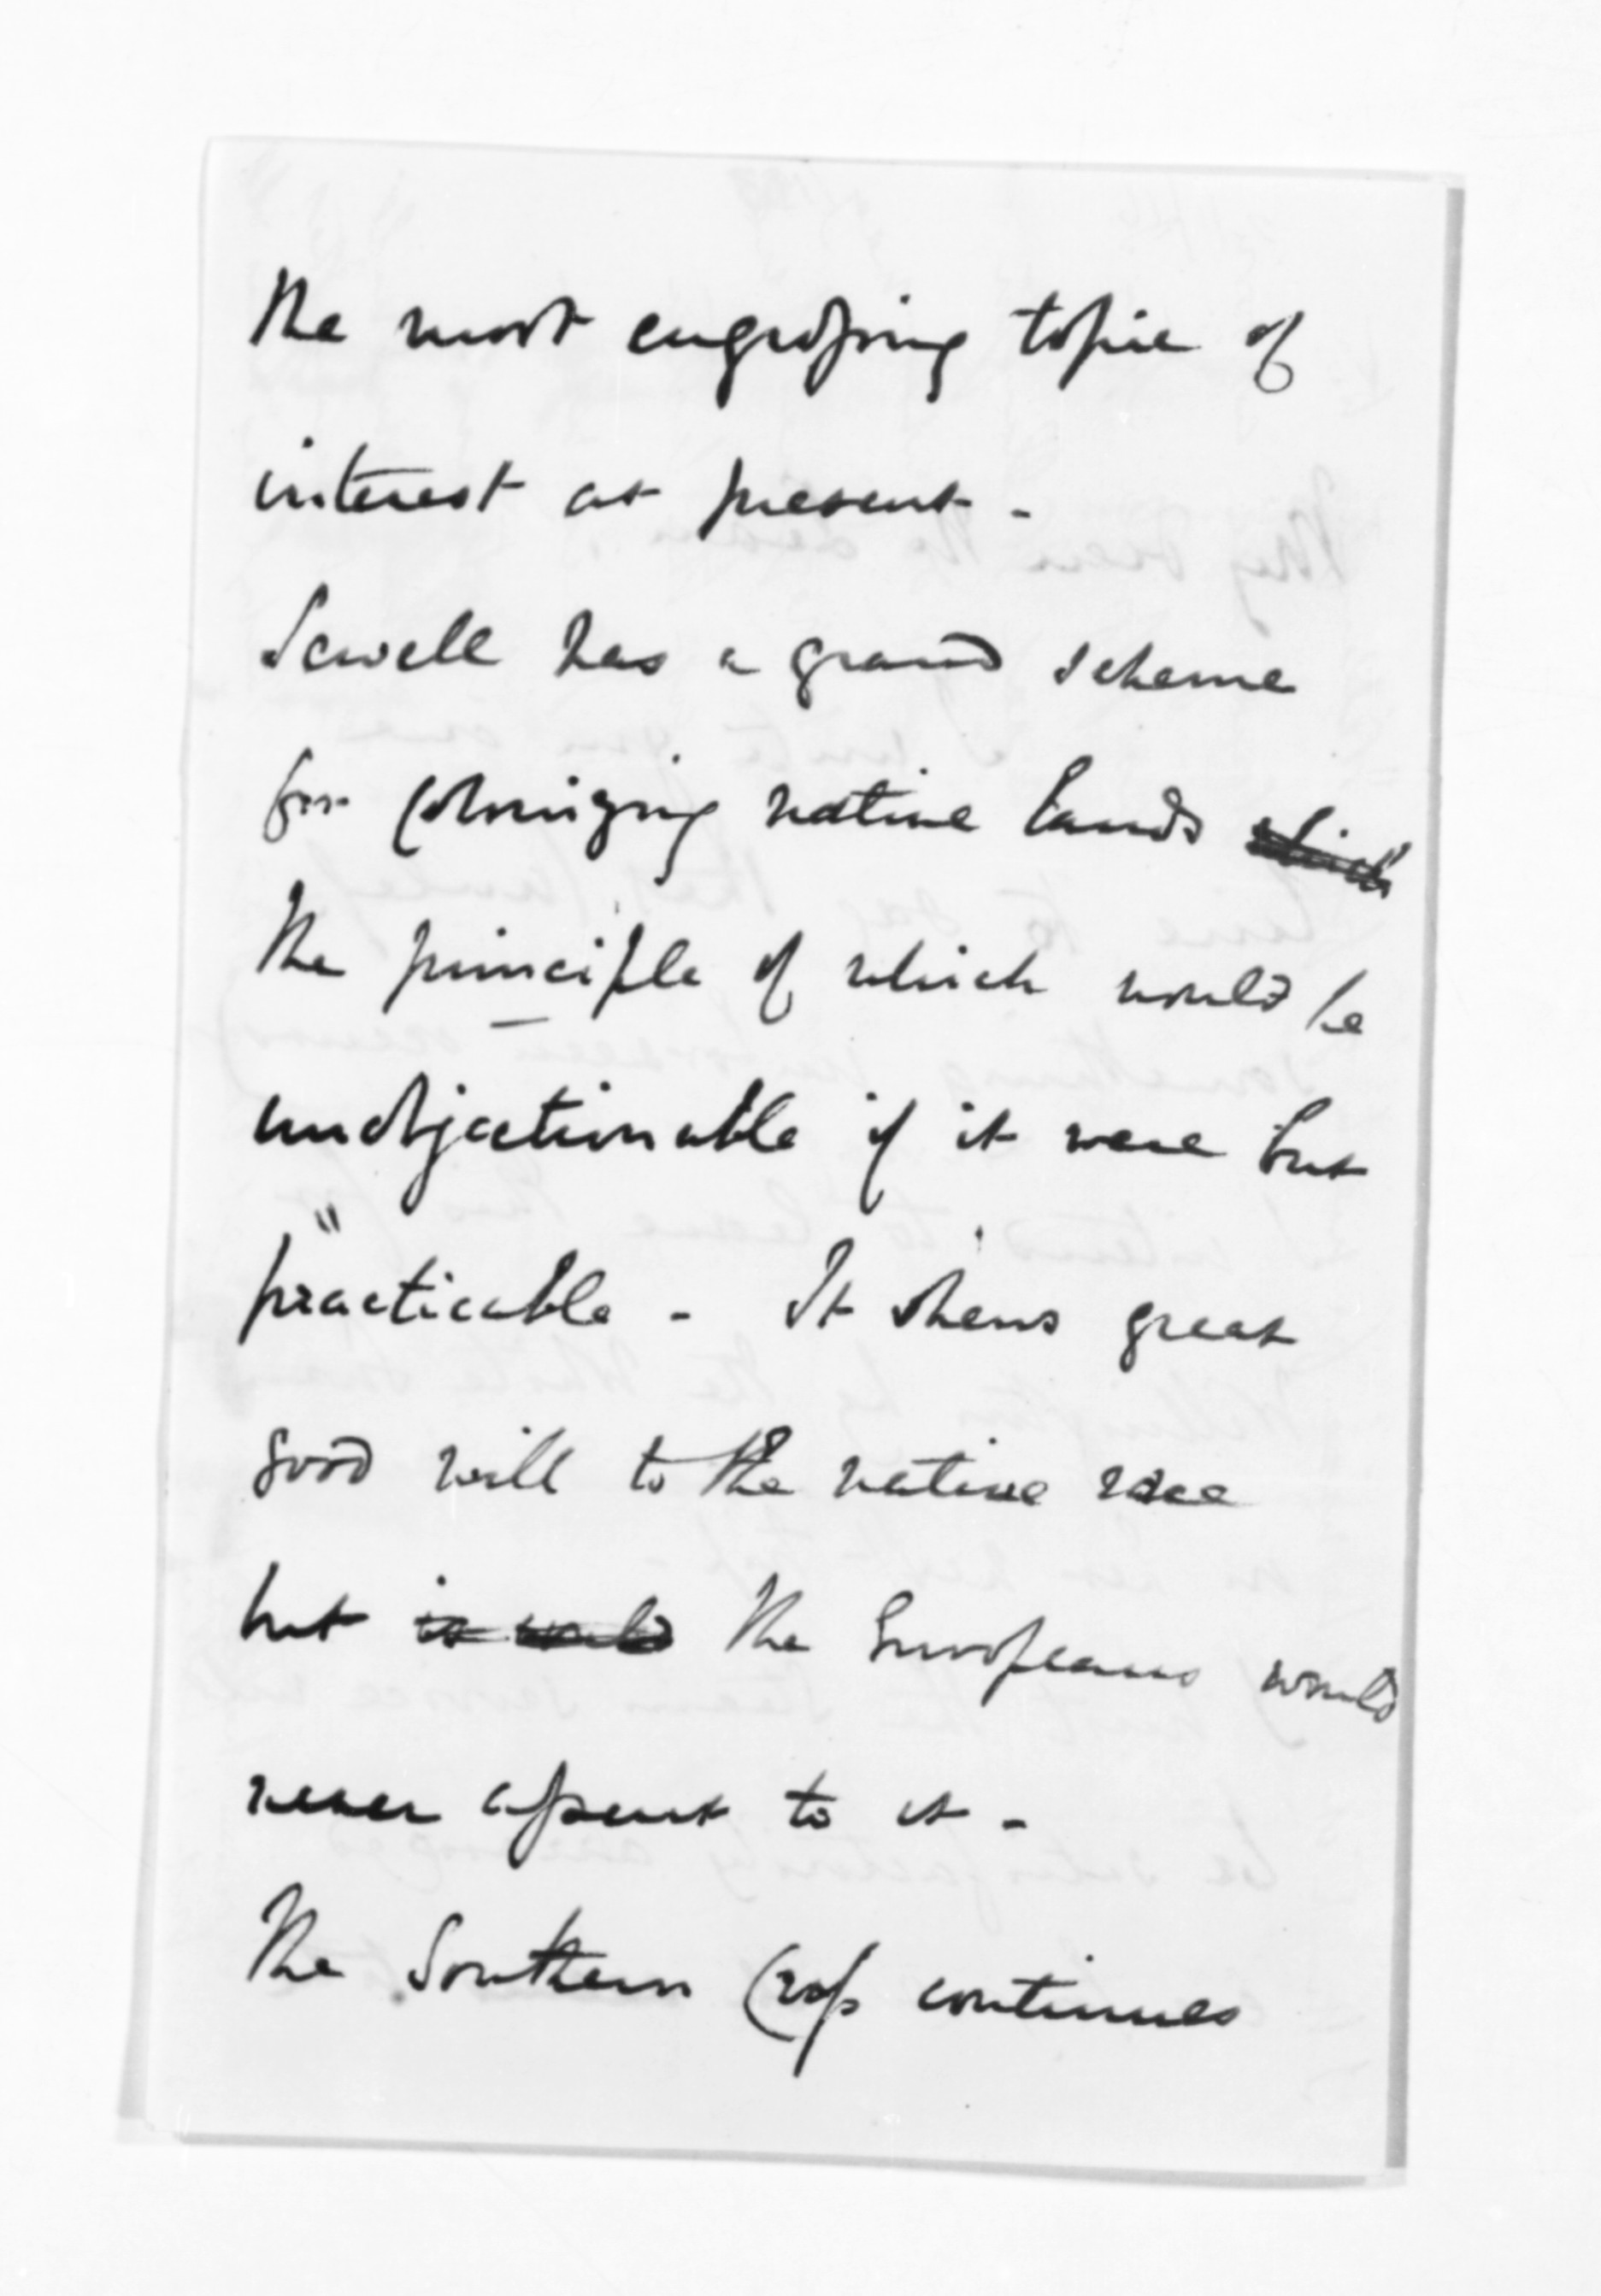 the most engrossing topic of
interest at present -
Sewell has a grand scheme
for colonizing native lands which
the principle of which would be
unobjectionable if it were but
practicable - It shews great
good will to the native race
but it would the Europeans would
never assent to it -
The Southern Cross continues